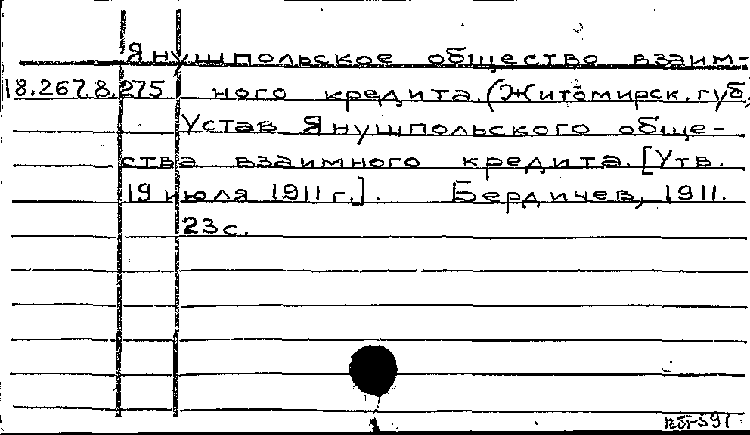 Янушпольское общество взаим-
18.267.8.275 ного кредита. (Житомирск. губ.
Устав Янушпольского обще-
ства взаимного кредита. [Утв.
19 июля 1911 г.]. Бердичев, 1911.
23 с.